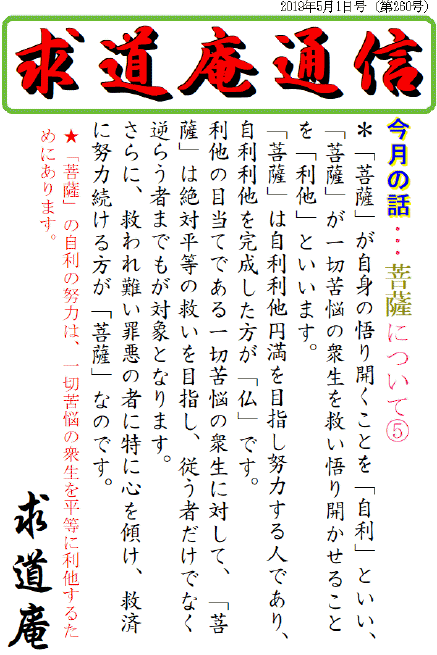 2019年5月1日号（第260号）
求道庵通信
今月の話‥‥菩薩について⑤
＊「菩薩」が自身の悟り開くことを「自利」といい、
「菩薩」が一切苦悩の衆生を救い悟り開かせること
を「利他」といいます。
「菩薩」は自利利他円満を目指し努力する人であり、
自利利他を完成した方が「仏」です。
利他の目当てである一切苦悩の衆生に対して、「菩
薩」は絶対平等の救いを目指し、従う者だけでなく
逆らう者までもが対象となります。
さらに、救われ難い罪悪の者に特に心を傾け、救済
に努力続ける方が「菩薩」なのです。
★「菩薩」の自利の努力は、一切苦悩の衆生を平等に利他するた
めにあります。
求道庵